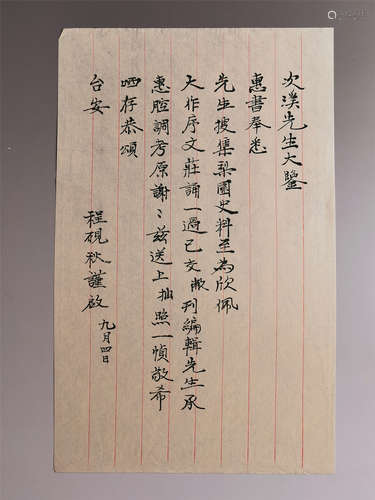 次濮先生大鑒
惠書奉悉
先生搜集梨園史料至為欣佩
大作序文莊誦一過已交敝刊編輯先生承
惠腔調考原謝〻茲送上拙照一幀敬希
哂存恭頌
台安
程硯秋謹啟
九月四日